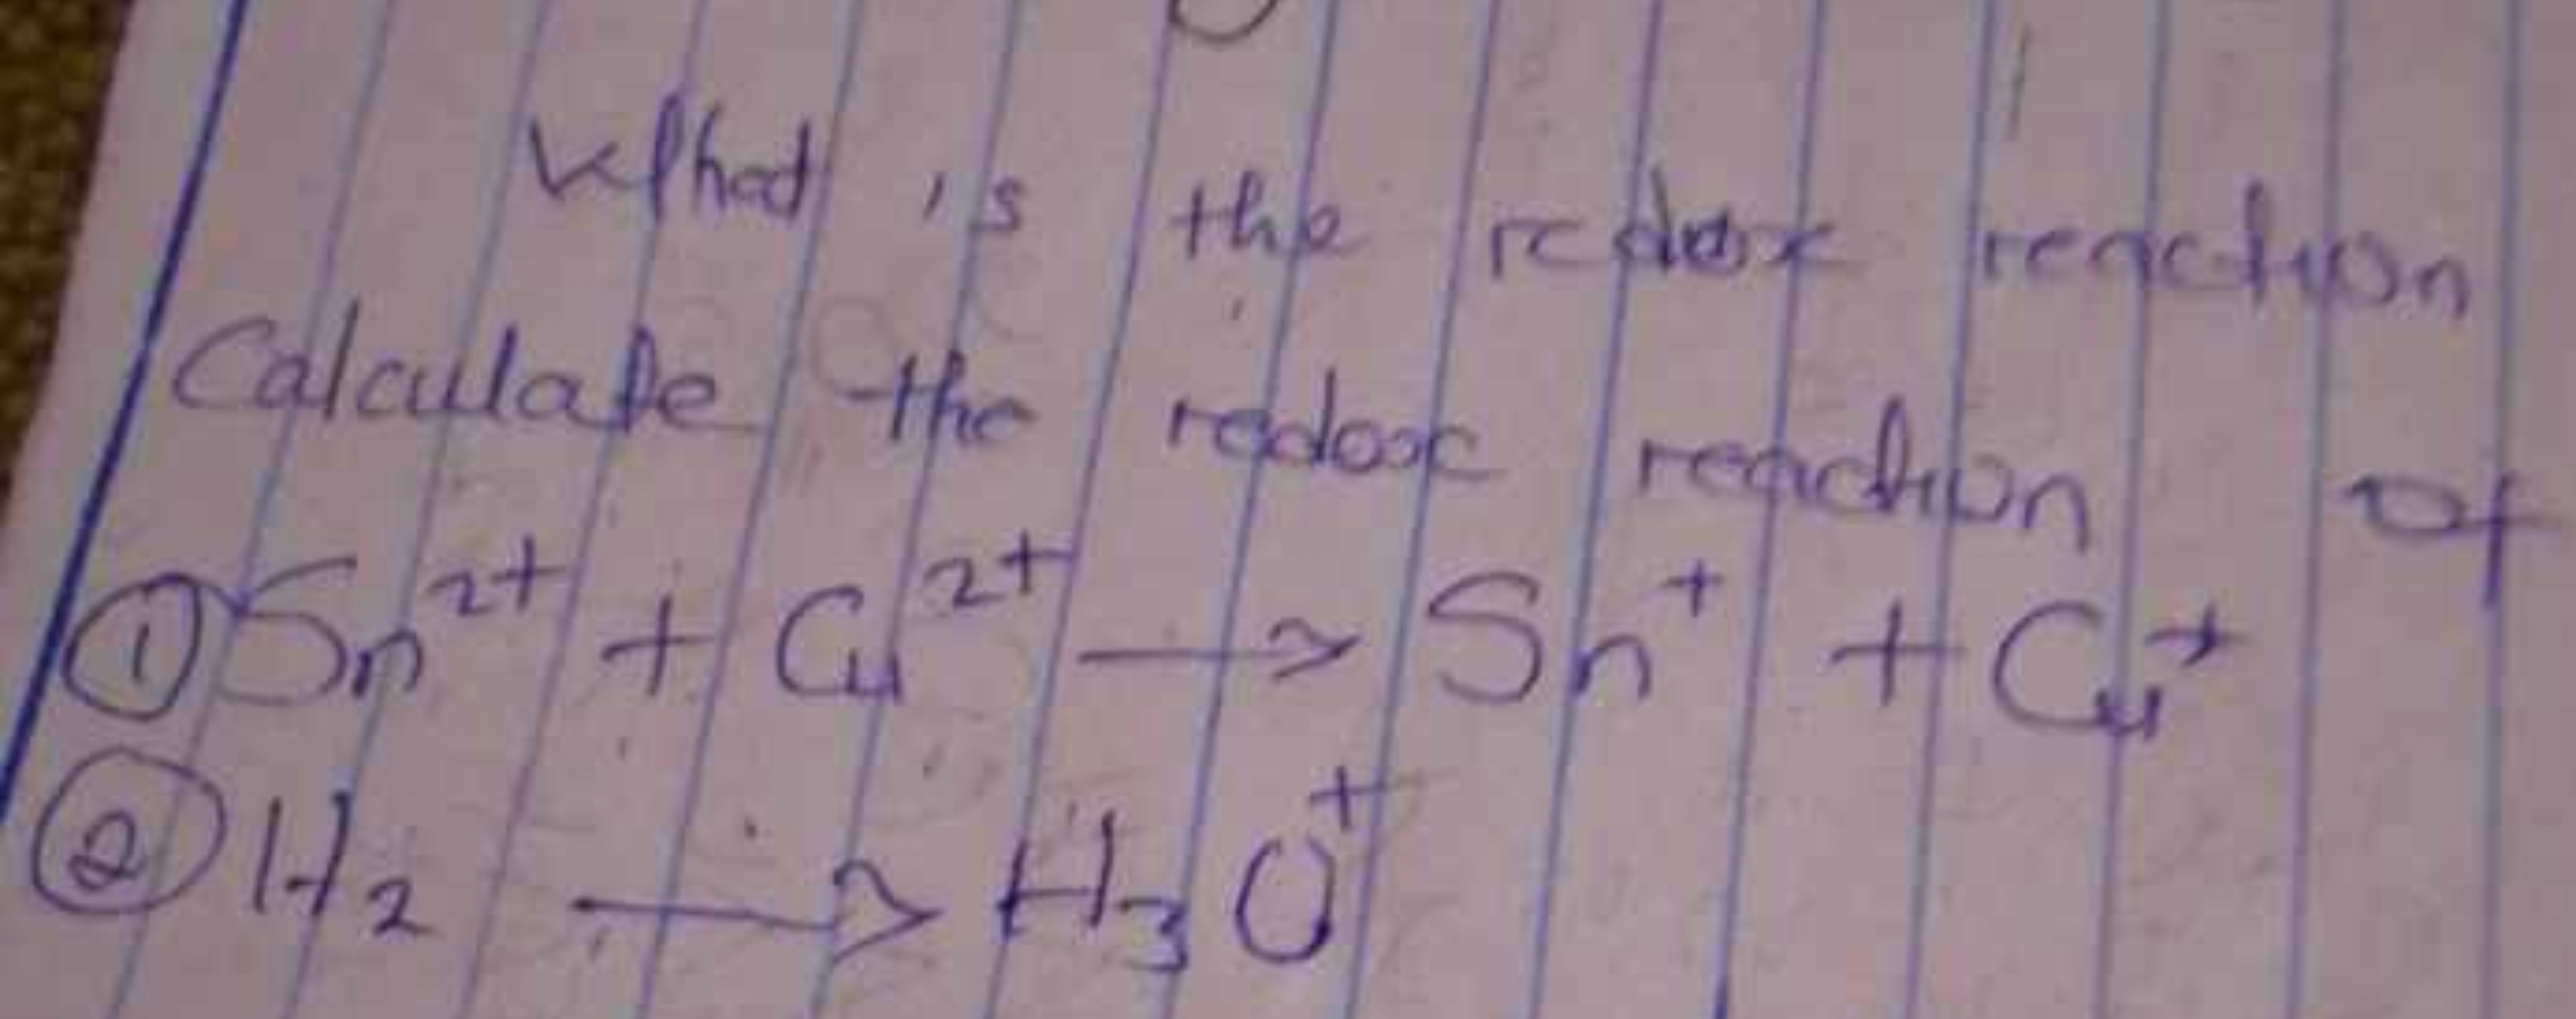 What is the redox reaction
Calculate the redox reaction of
① Sn²⁺ + Cu²⁺ → Sn⁺ + Cu⁺
② H₂ → H₃O⁺